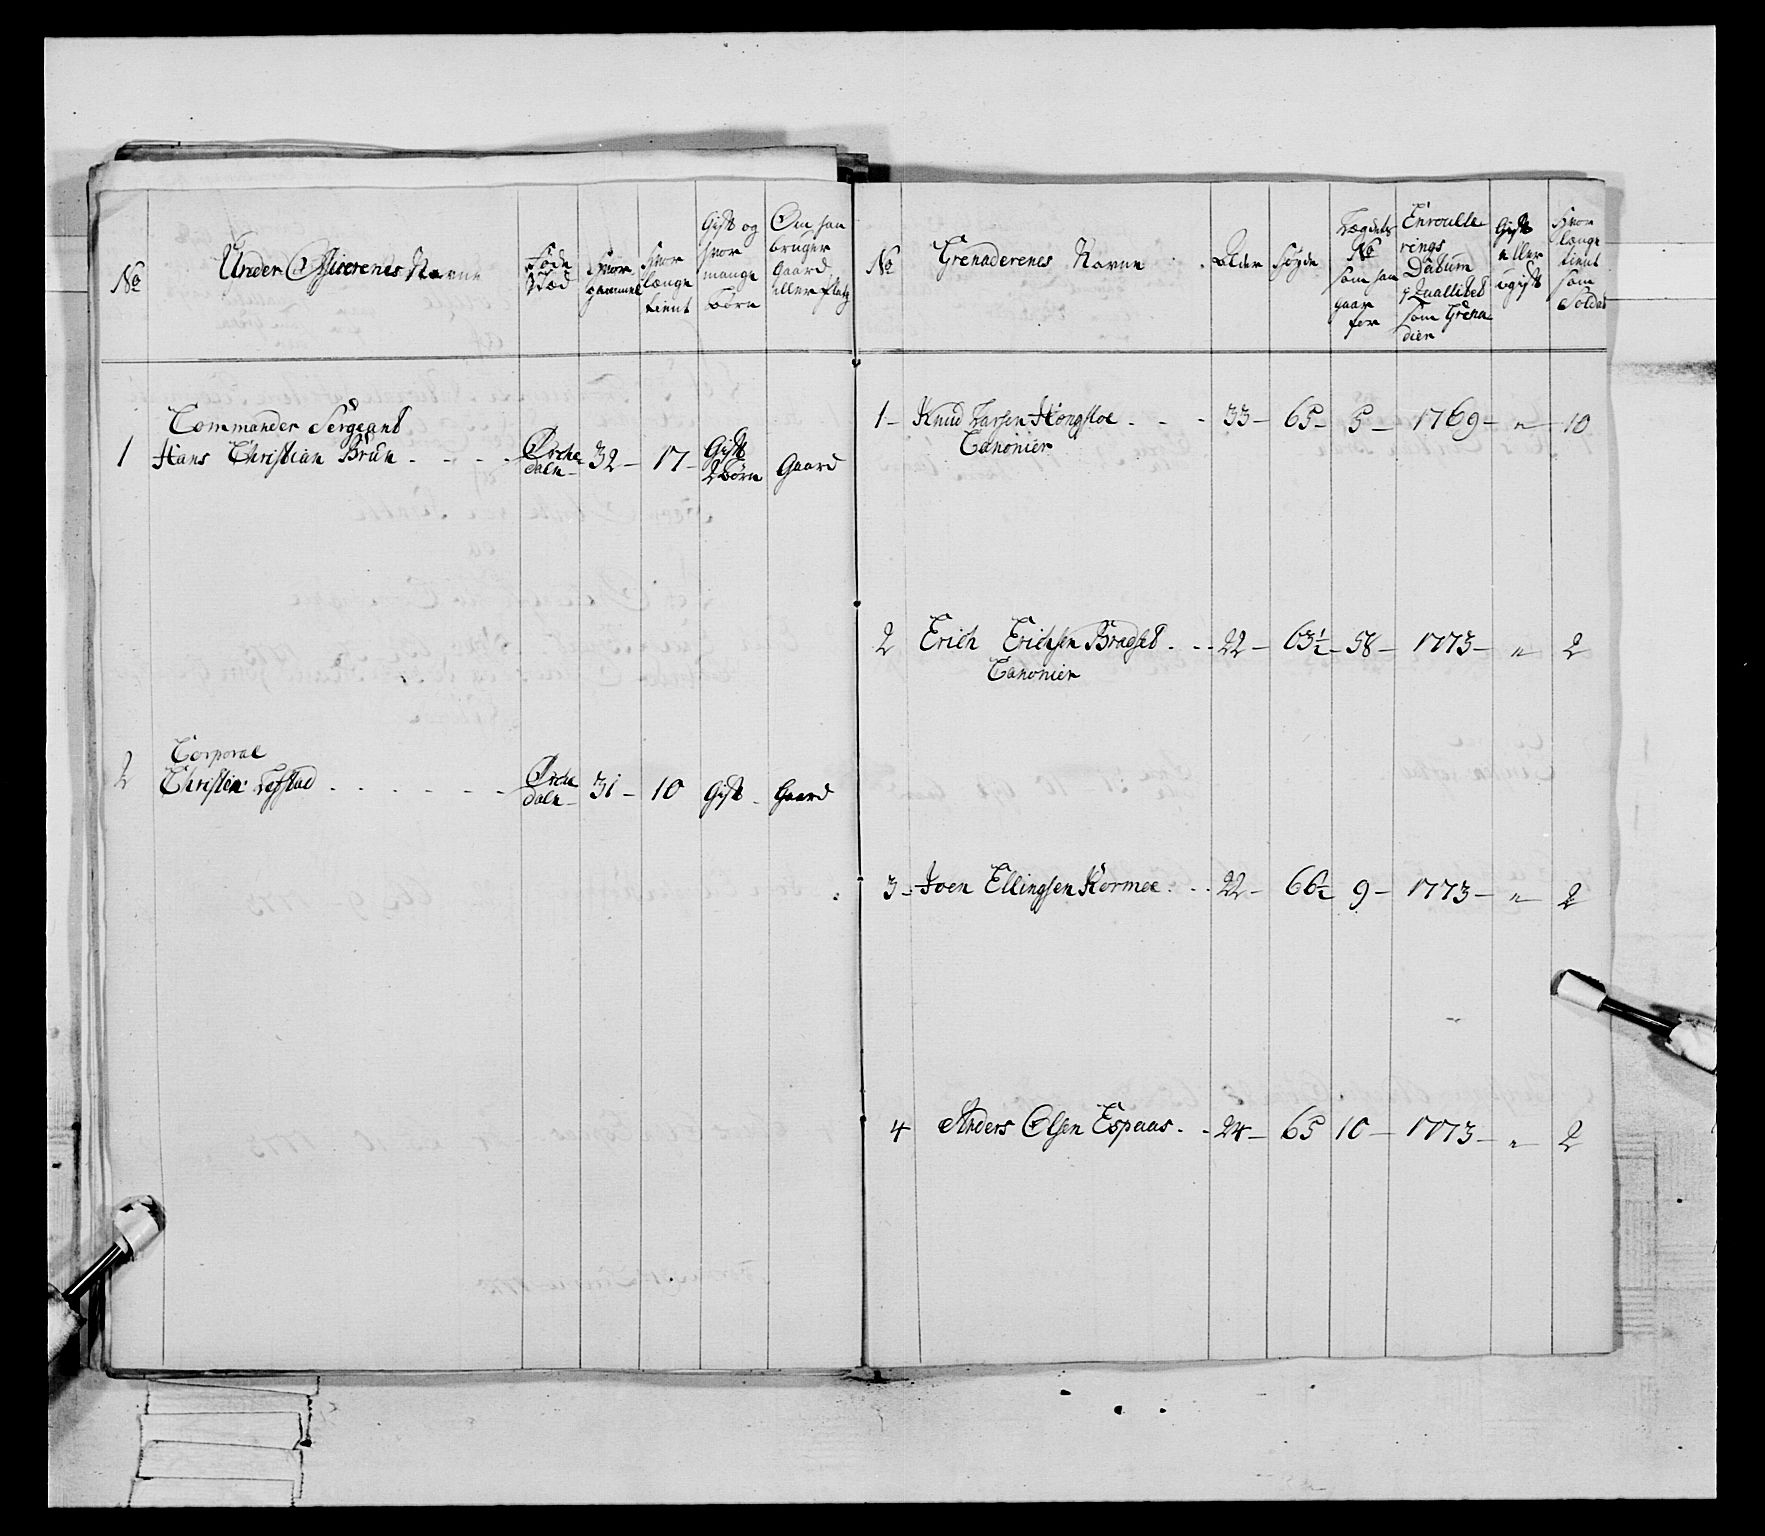 No
Under Officerenes Navne
Føde
Stæd
Hvor
gammel
Hvor
længe
tient
Gift og
hvor
mange
Børn
Om han
bruger
Gaard
eller Platz
1
Commander Sergeant
Hans Christian Brun - - - -
Orche
daln -
32 -
17 -
Gift
2 Børn
Gaard
2
Corporal
Christen Lefstad - - - - - -
Orche
daln -
31 -
10
Gift -
Gaard
No
Grenaderenes Navne
Alder
Høyde
Lægdets
No
som han
gaar
for
Enroulle
rings
Datum
i Quallitet
som Grena
dier
Gift
eller
ugift
Hvor
længe
tient
som
Soldat
1 - Knud Larsen Hongsloe - - - 33 - 65 - 5 - 1769 - " - 10
Canonier
2 Erich Erichsen Bradset - - - 22 - 63½ - 58 - 1773 - " - 2
Canonier
3 - Joen Ellingsen Kormee - - - 22 - 66½ 9 - 1773 - " - 2
4 Anders Olsen Espaas - - 24 - 65 10 - 1773 - " - 2